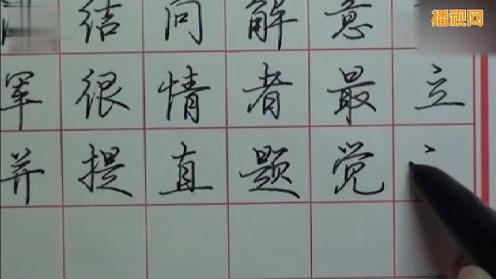 播视网
结问解意
军很情者最立
并提直题党